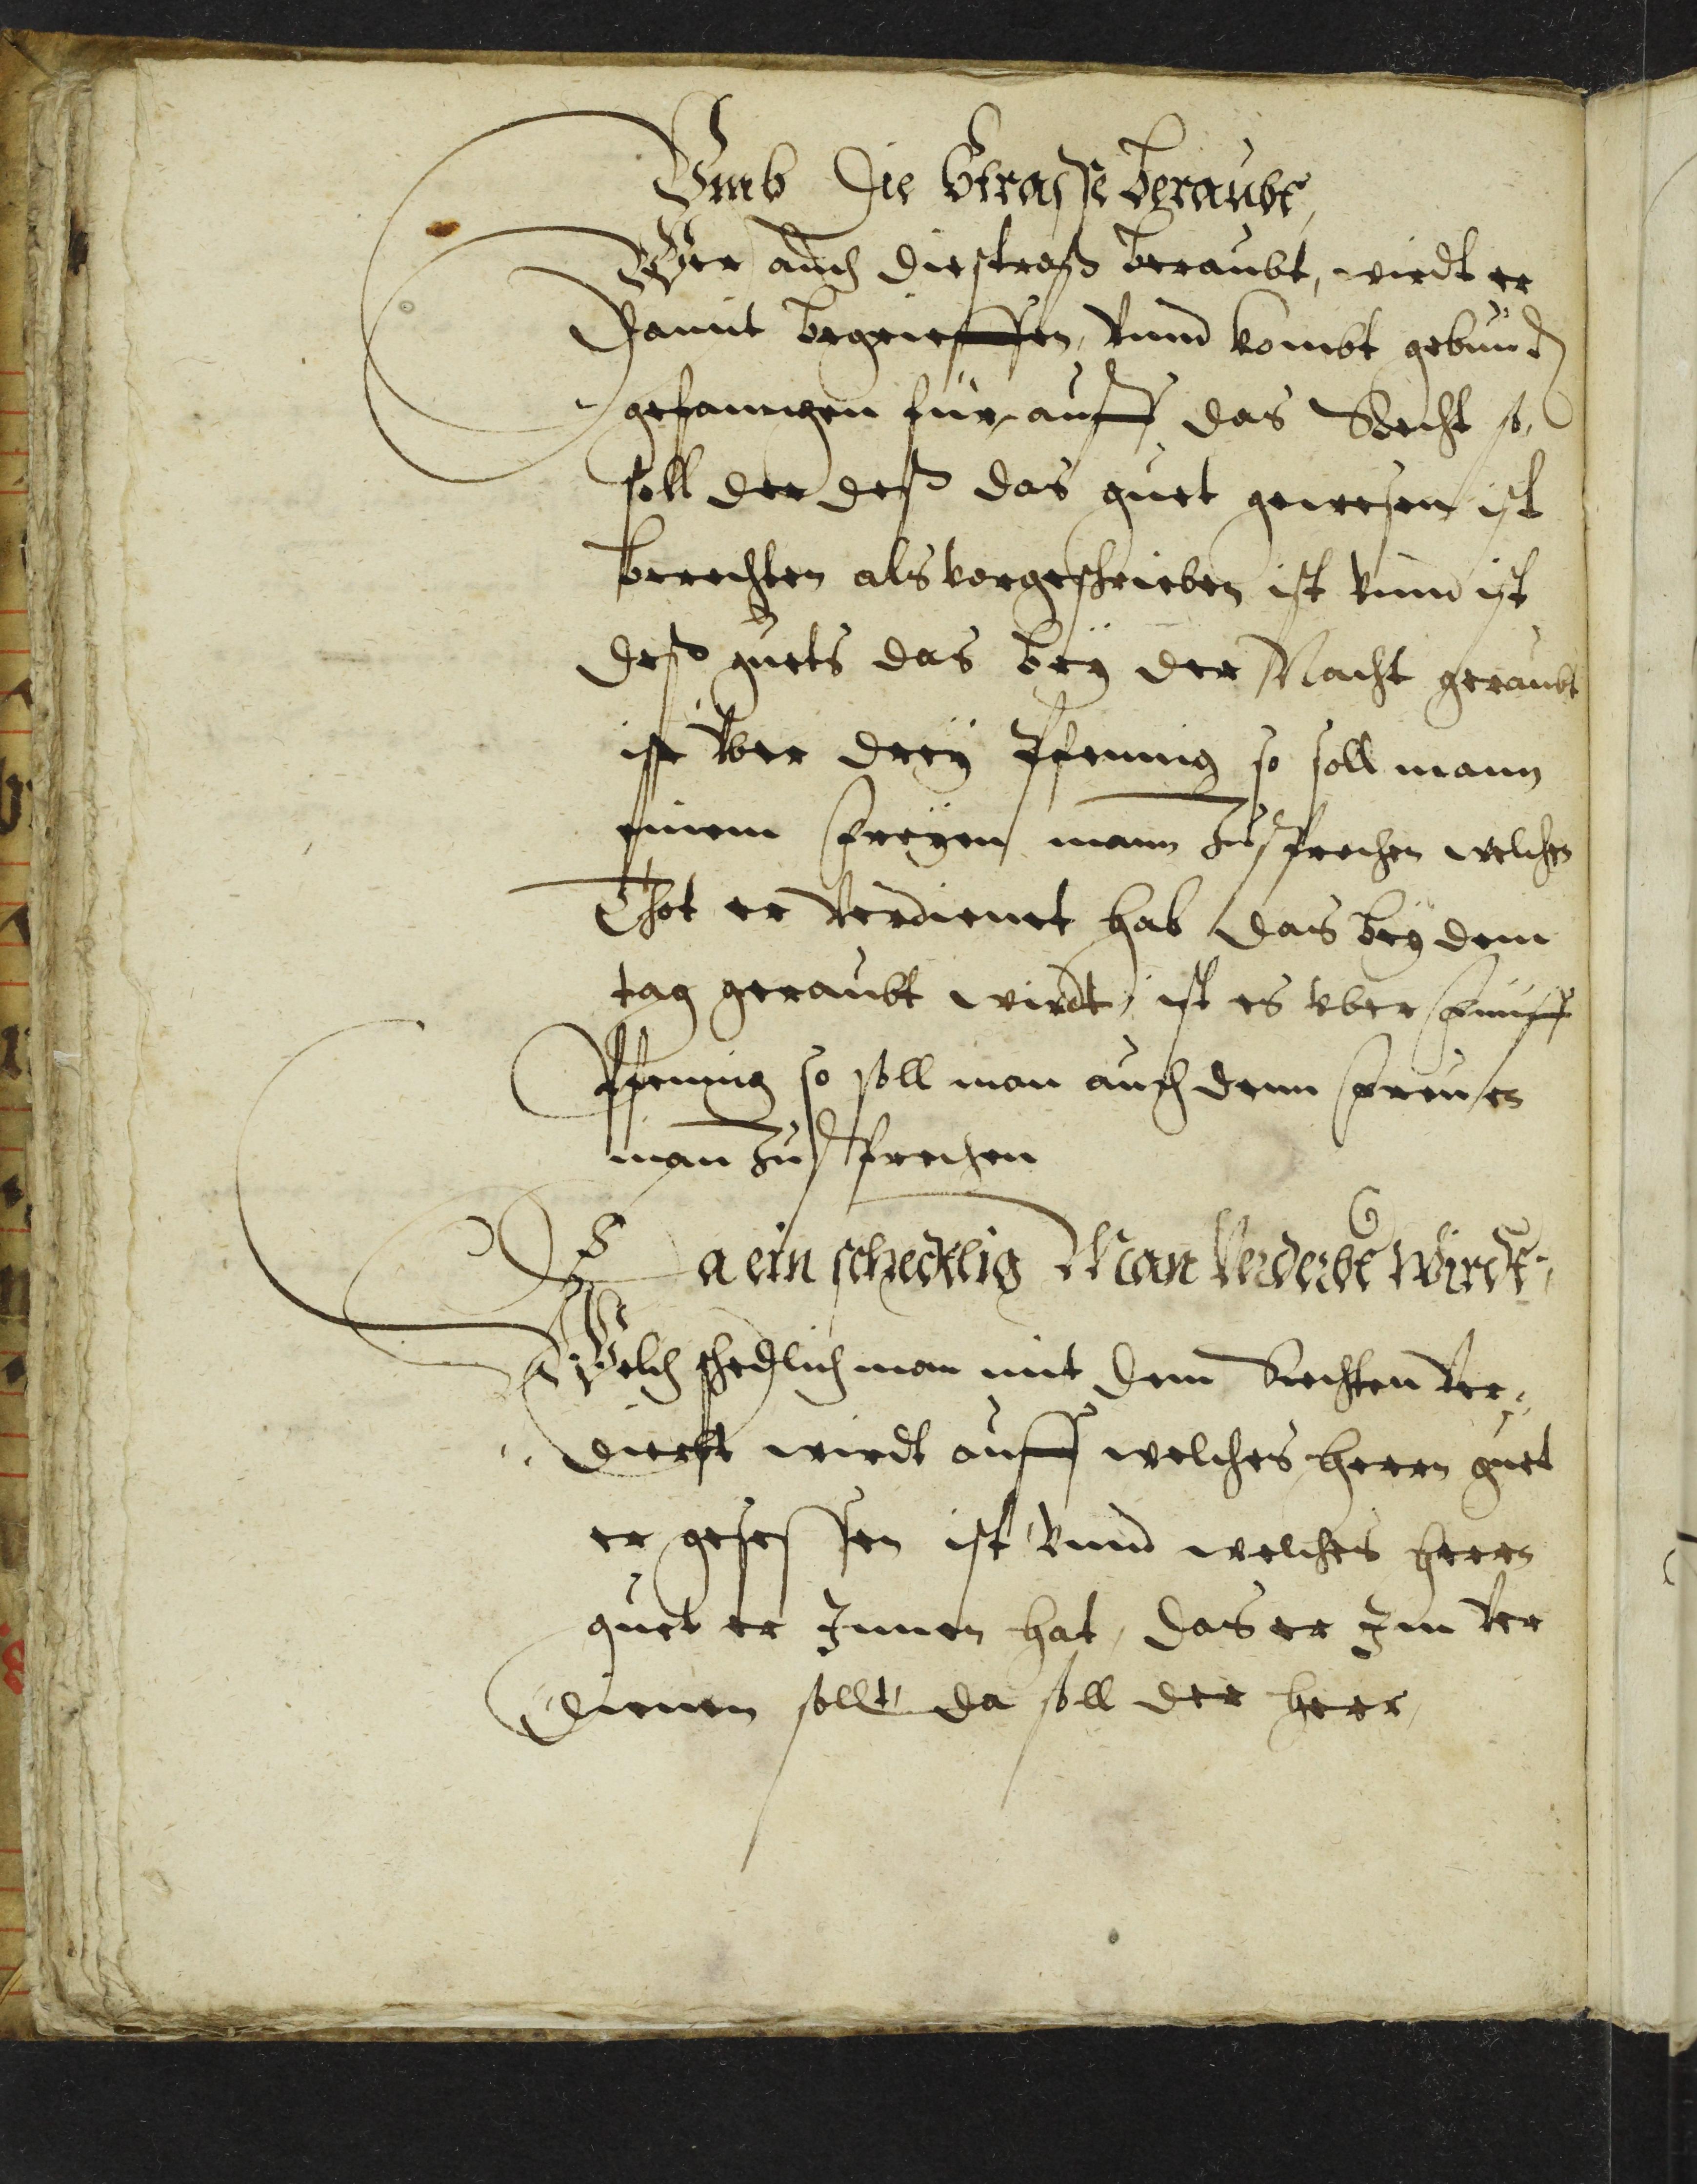 Vmb die Strasse beraubt,
Wer auch die straß beraubt, wirdt er
damit begrieffen, vnnd kombt gebund
gefanngen für auff das Recht so,
soll der deß das guet gewesen ist
berechten als vorgeschrieben ist vnnd ist
deß guets das beÿ der Nacht geraubt
ist vber dreÿ Pfennig so soll mann
einem freÿen mann Zusprechen welchen
Thot er verdienet hab das beÿ dem
tag geraubt wirdt, ist es vber fünff
Pfennig so soll man auch dem
man Zusprechen
Da ein schedlig Man Verderbt wirdt,
Welch schedlich man mit dem Rechten ver¬
dierbt wirdt auff welches herrn guet
er gesessen ist vnnd welches herrn
guet er Innen hat, das er Im ver
dienen sollt, da soll der herr,